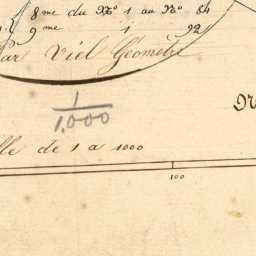 8 me du No 1 au No 84
9 me 1 92
Par Viel Géomètre
1
1.000
lle de 1 a 1000
100